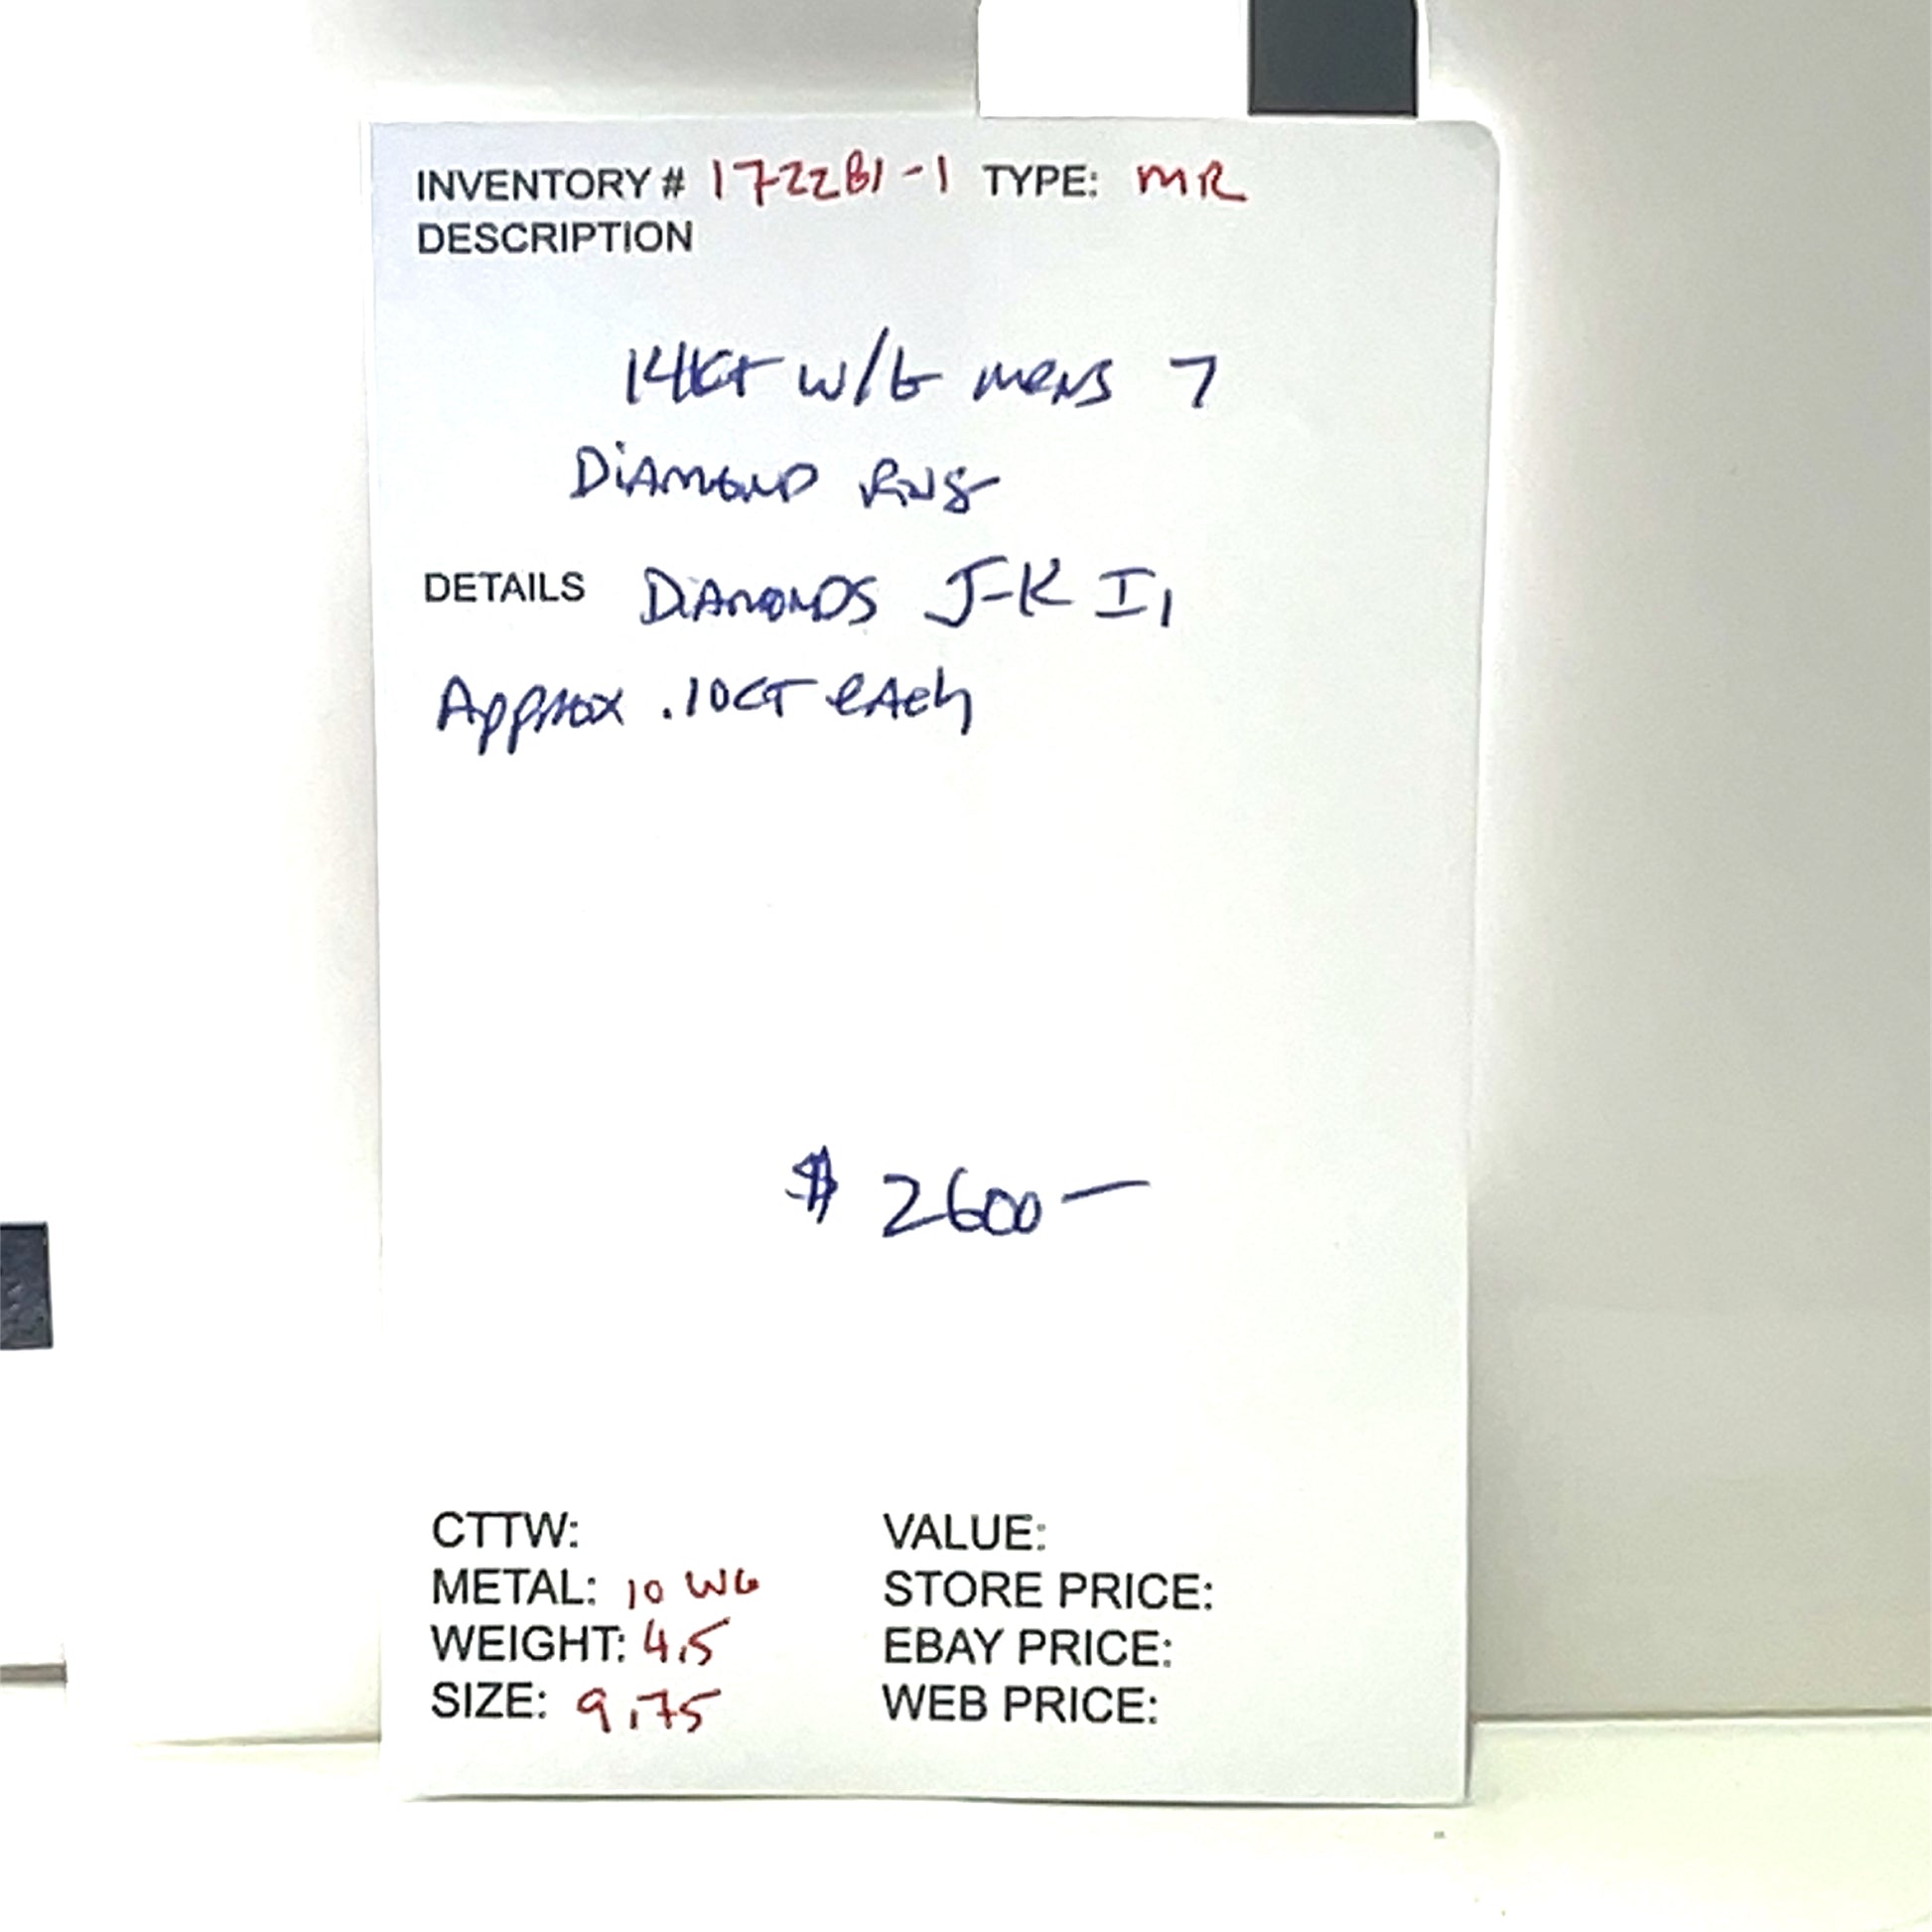 INVENTORY # 172281-1 TYPE: MR
DESCRIPTION
14KT W/G MENS 7
DIAMOND RING
DETAILS DIAMONDS J-K I1
Approx .10CT EACH
$ 2600—
CTTW: VALUE:
METAL: 10 WG STORE PRICE:
WEIGHT: 4.5 EBAY PRICE:
SIZE: 9.75 WEB PRICE: